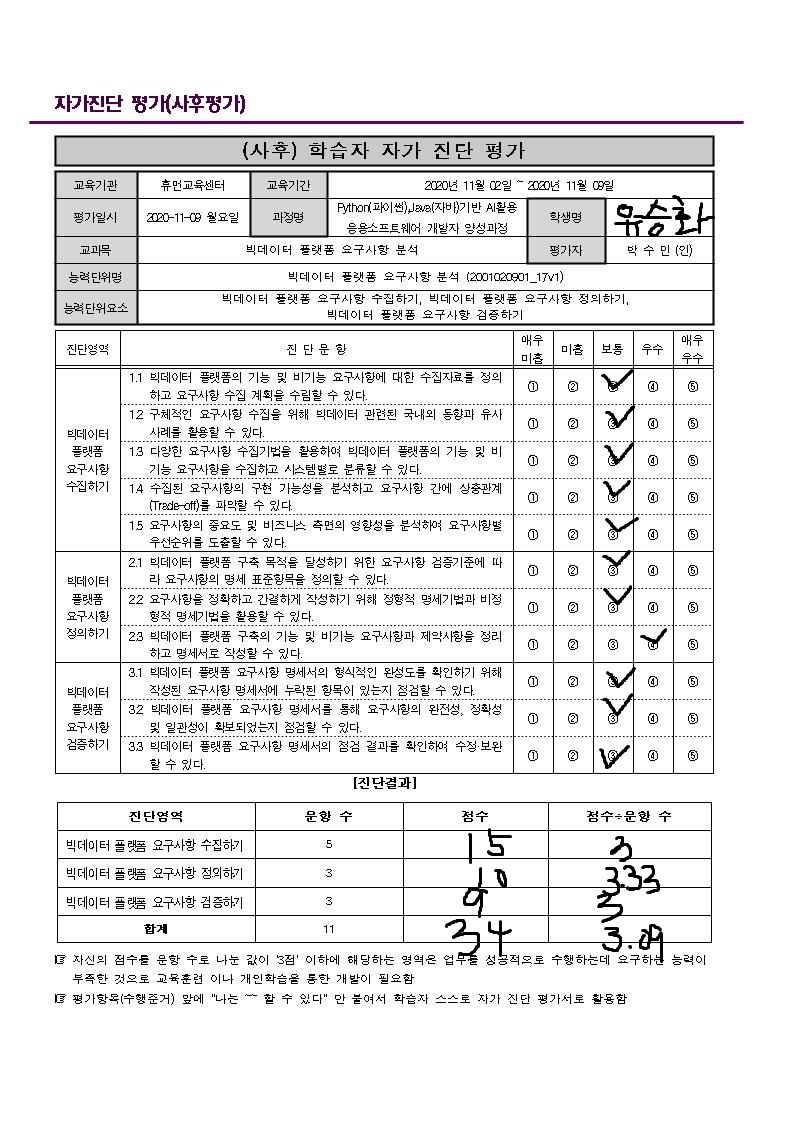 자가진단 평가(사후평가)
(사후) 학습자 자가 진단 평가
교육기관 휴먼교육센터 교육기간 2020년 11월 02일 ~ 2020년 11월 09일
평가일시 2020-11-09 월요일 과정명 Python(파이썬),Java(자바)기반 AI활용 응용소프트웨어 개발자 양성과정 학생명 유승화
교과목 빅데이터 플랫폼 요구사항 분석 평가자 박 수 민 (인)
능력단위명 빅데이터 플랫폼 요구사항 분석 (2001020901_17v1)
능력단위요소 빅데이터 플랫폼 요구사항 수집하기, 빅데이터 플랫폼 요구사항 정의하기,
빅데이터 플랫폼 요구사항 검증하기
진단영역 진 단 문 항 매우 미흡 미흡 보통 우수 매우 우수
빅데이터 플랫폼 요구사항 수집하기
1.1 빅데이터 플랫폼의 기능 및 비기능 요구사항에 대한 수집자료를 정의
하고 요구사항 수집 계획을 수립할 수 있다. ① ② ③ ④ ⑤
1.2 구체적인 요구사항 수집을 위해 빅데이터 관련된 국내외 동향과 유사
사례를 활용할 수 있다. ① ② ③ ④ ⑤
1.3 다양한 요구사항 수집기법을 활용하여 빅데이터 플랫폼의 기능 및 비
기능 요구사항을 수집하고 시스템별로 분류할 수 있다. ① ② ③ ④ ⑤
1.4 수집된 요구사항의 구현 가능성을 분석하고 요구사항 간에 상충관계
(Trade-off)를 파악할 수 있다. ① ② ③ ④ ⑤
1.5 요구사항의 중요도 및 비즈니스 측면의 영향성을 분석하여 요구사항별
우선순위를 도출할 수 있다. ① ② ③ ④ ⑤
빅데이터 플랫폼 요구사항 정의하기
2.1 빅데이터 플랫폼 구축 목적을 달성하기 위한 요구사항 검증기준에 따
라 요구사항의 명세 표준항목을 정의할 수 있다. ① ② ③ ④ ⑤
2.2 요구사항을 정확하고 간결하게 작성하기 위해 정형적 명세기법과 비정
형적 명세기법을 활용할 수 있다. ① ② ③ ④ ⑤
2.3 빅데이터 플랫폼 구축의 기능 및 비기능 요구사항과 제약사항을 정리
하고 명세서로 작성할 수 있다. ① ② ③ ④ ⑤
빅데이터 플랫폼 요구사항 검증하기
3.1 빅데이터 플랫폼 요구사항 명세서의 형식적인 완성도를 확인하기 위해
작성된 요구사항 명세서에 누락된 항목이 있는지 점검할 수 있다. ① ② ③ ④ ⑤
3.2 빅데이터 플랫폼 요구사항 명세서를 통해 요구사항의 완전성, 정확성
및 일관성이 확보되었는지 점검할 수 있다. ① ② ③ ④ ⑤
3.3 빅데이터 플랫폼 요구사항 명세서의 점검 결과를 확인하여 수정·보완
할 수 있다. ① ② ③ ④ ⑤
[진단결과]
진단영역 문항 수 점수 점수÷문항 수
빅데이터 플랫폼 요구사항 수집하기 5 15 3
빅데이터 플랫폼 요구사항 정의하기 3 10 3.33
빅데이터 플랫폼 요구사항 검증하기 3 9 3
합계 11 34 3.09
☞ 자신의 점수를 문항 수로 나눈 값이 '3점' 이하에 해당하는 영역은 업무를 성공적으로 수행하는데 요구하는 능력이
부족한 것으로 교육훈련 이나 개인학습을 통한 개발이 필요함
☞ 평가항목(수행준거) 앞에 "나는 ~~ 할 수 있다" 만 붙여서 학습자 스스로 자가 진단 평가서로 활용함